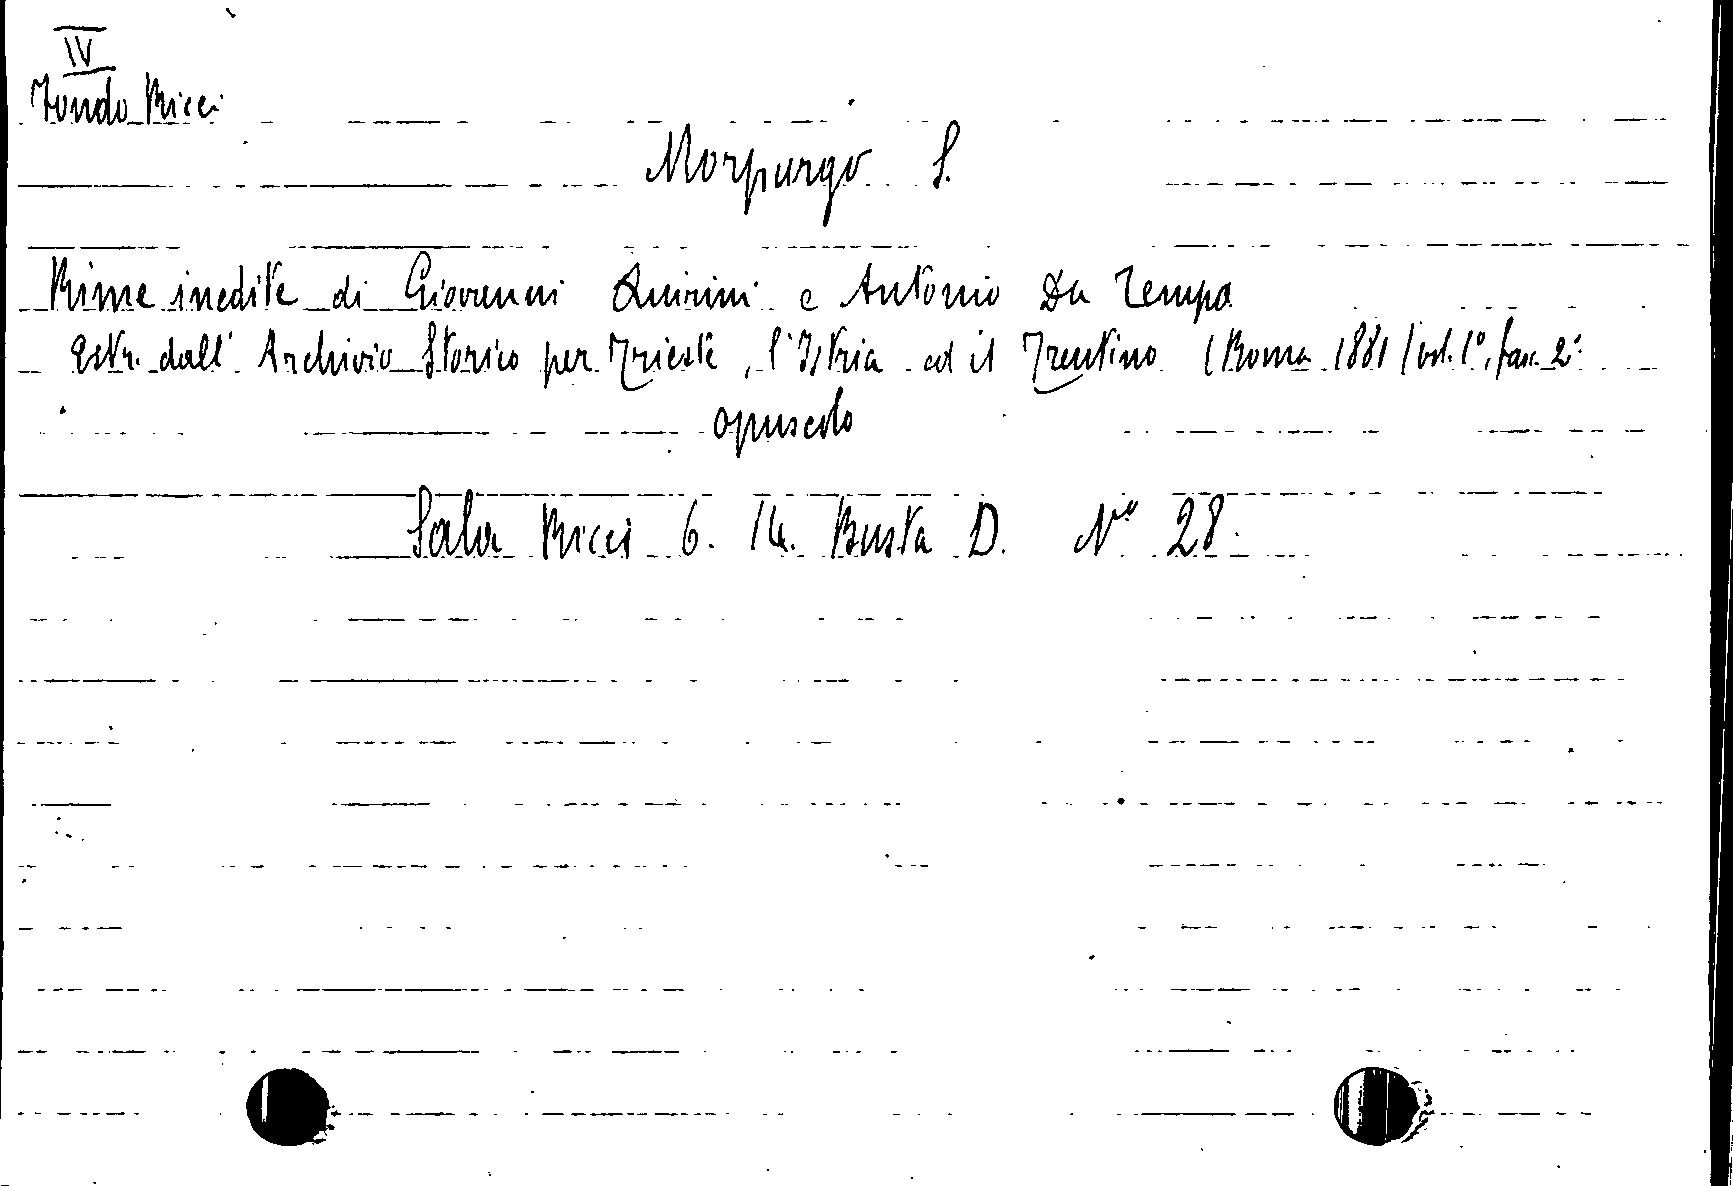 IV
Fondo Ricci
Morpurgo S.
Rime inedite di Giovanni Quirini e Antonio Da Tempo
Estr. dall' Archivio Storico per Trieste, l'Istria ed il Trentino (Roma 1881) vol. 1º, fasc. 2º
opuscolo
Sala Ricci 6. 14. Busta D. Nº 28.